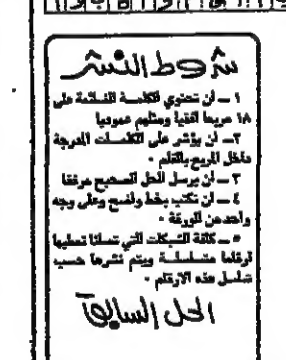 شروط النشر
١ ـ ان تحتوي الكلمة الضائعة على
١٨ مربعا افقيا ومثلهم عموديا
٢ـ ان يؤشر على الكلمات المدرجة
داخل المربع بالقلم ٠
٣ ـ ان يرسل الحل الصحيح مرفقا
٤ ـ ان تكتب بخط واضح وعلى وجه
واحد من الورقة ٠
٥ ـ كافة الشبكات التي تصلنا نعطيها
ارقاما متسلسلة ويتم نشرها حسب
تسلسل هذه الارقام ٠
الحل السابق